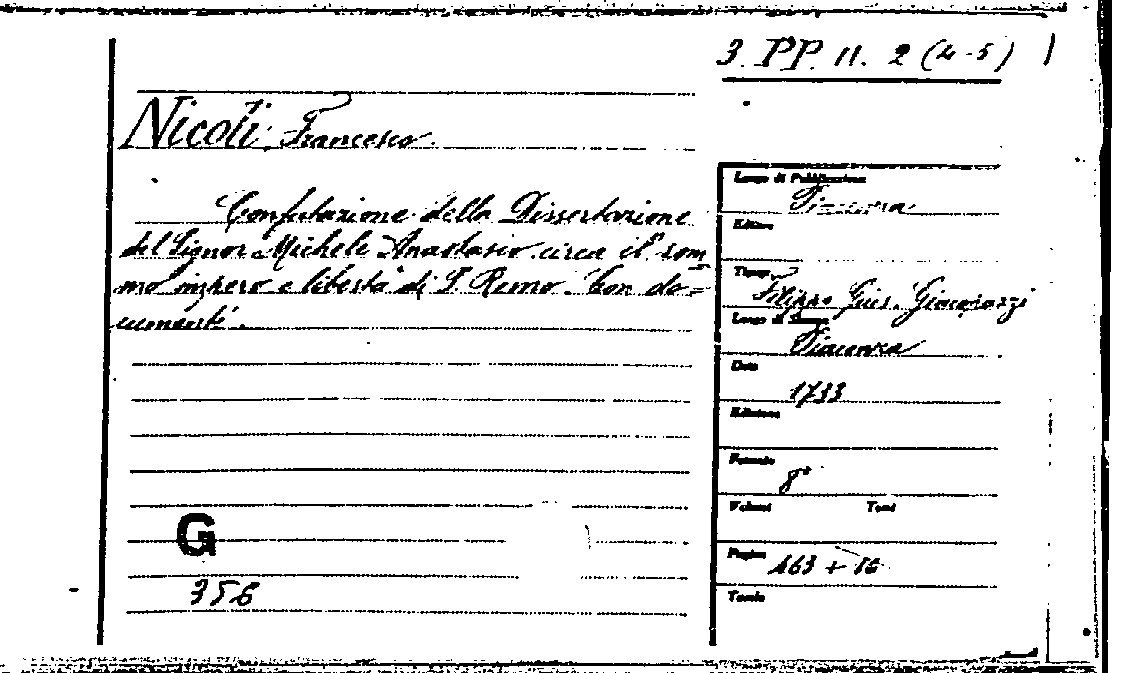 3. PP. II. 2 (4-5)
Nicoli Francesco.
Confutazione della Dissertazione
del Signor Michele Anastasio circa il som=
mo impero e libertà di S. Remo. Con do=
cumenti.
G
356
Luogo di Pubblicazione
Piacenza
Editore
Tipogr.
Filippo Gius. Giacopazzi
Luogo di Stampa
Piacenza
Data
1733
Edizione
Formato
8°
Volumi Tomi
Pagine 163 + 16
Tavole